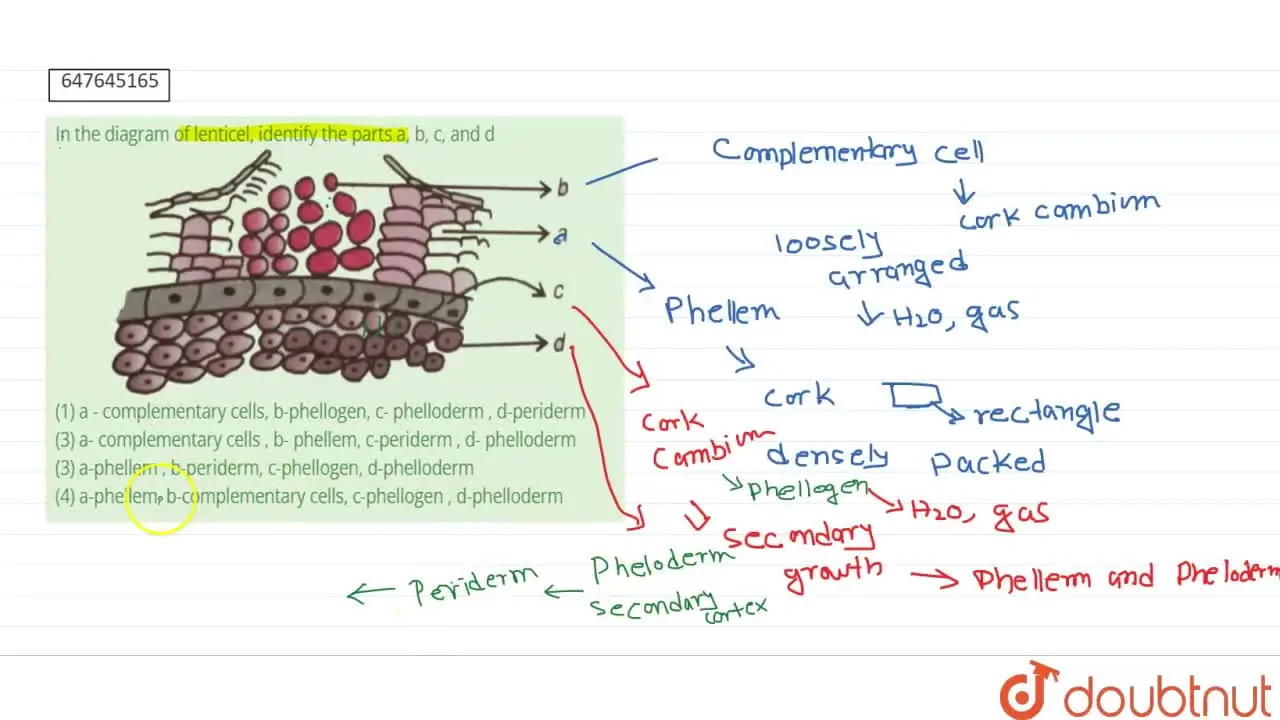 647645165
In the diagram of lenticel, identify the parts a, b, c, and d
b
a
c
d
(1) a - complementary cells, b-phellogen, c- phelloderm , d-periderm
(3) a- complementary cells , b- phellem, c-periderm , d- phelloderm
(3) a-phellem , b-periderm, c-phellogen, d-phelloderm
(4) a-phellem, b-complementary cells, c-phellogen , d-phelloderm
Complementary cell
cork cambium
loosely
arranged
H2O, gas
Phellem
cork
rectangle
densely packed
cork
cambium
phellogen
H2O, gas
secondary
growth
Phellerm and Pheloderm
Pheloderm
secondary
cortex
Periderm
doubtnut